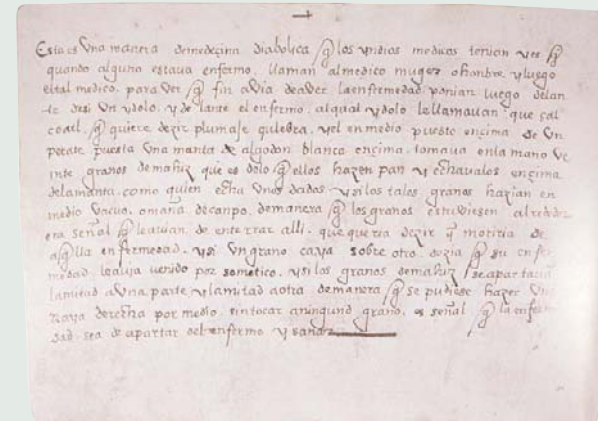 Esta es Una manera demedeçina diabolica q̃ los yndios medicos tenian y es q̃
quando alguno estava enfermo, llaman al medico muger ohonbre. y luego
el tal medico. para ver q̃ fin avia deaver la enfermedad. ponian luego delan
te desi un ydolo. y delante el enfermo. al qual ydolo lellamauan. queçal
coatl. q̃ quiere dezir plumaje culebra. y el en medio puesto ençima de Un
petate puesta Una manta de algodon blanco ençima. tomava enla mano ve
inte granos demahiz que es delo q̃ ellos hazen pan y echavalos ençima
delamanta. como quien echa Unos dados. y si los tales granos hazian en
medio vacuo. omaña decanpo. demanera q̃ los granos estuviesen alrededor
era señal q̃ leauian de enterrar alli. que queria dezir q̃ moriria de
aq̃lla enfermedad. y si Un grano caya sobre otro. dezia q̃ su enfer
medad. leavia venido por sometico. y si los granos demahiz se apartavā
lamitad aUna parte. y lamitad aotra demanera q̃ se pudiese hazer Una
Raya derecha por medio. sin tocar aningund grano. es señal q̃ la enferme
dad. sea de apartar del enfermo y sanar